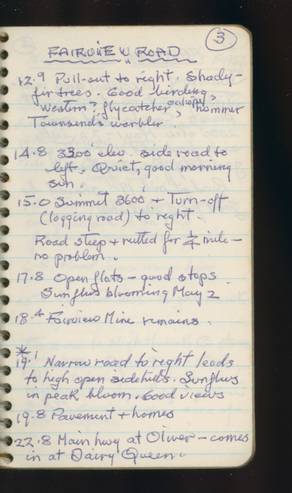 3
FAIRVIEW ROAD
12.9 Pull-out to right. Shady-
fir trees. Good birding,
Western? flycatcher, calliope hummer
Townsend's warbler
14.8 3300' elev. side road to
left. Quiet, good morning
sun.
15.0 Summit 3600' + Turn-off
(logging road) to right.
Road steep + rutted for ¼ mile—
no problem.
17.8 Open flats - good stops
Sunflws blooming May 2
18.4 Fairview Mine remains.
*
19.1 Narrow road to right leads
to high open sidehills. Sunflws
in peak bloom. Good views
19.8 Pavement + homes
22.8 Main hwy at Oliver - comes
in at Dairy Queen.